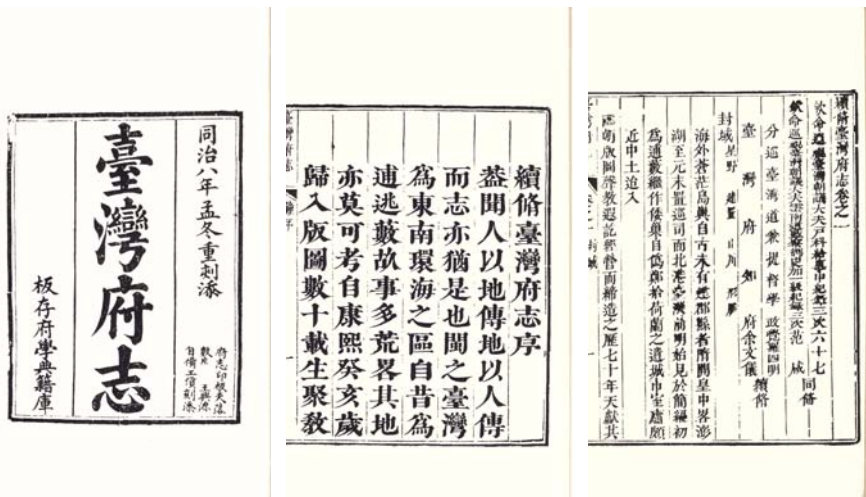 同治八年孟冬重刻添
臺灣府志
府志印板失落
數片
自備工價刻添
板存府學典籍庫
續脩臺灣府志序
葢聞人以地傳地以人傳
而志亦猶是也閩之臺灣
為東南環海之區自昔為
逋逃藪故事多荒畧其地
亦莫可考自康熙癸亥歲
歸入版圖數十載生聚教
續脩臺灣府志卷之一
欽命巡視臺灣朝議大夫戶科給事中紀錄三次六十七
欽命巡視臺灣朝議大夫雲南道監察御史加一級紀錄三次范咸
同脩
分巡臺灣道兼提督學政覺羅四明
臺灣府知府余文儀
續脩
封域 星野 建置 山川 形勝
海外蒼茫島嶼自古未有建郡縣者隋開皇中畧澎
湖至元末置巡司而北港臺灣前明始見於簡編初
為逋藪繼作倭巢自為鄭拾荷蘭之遺城市室廬頗
近中土迨入
國朝版圖聲教遐訖經營而締造之歷七十年天獻其